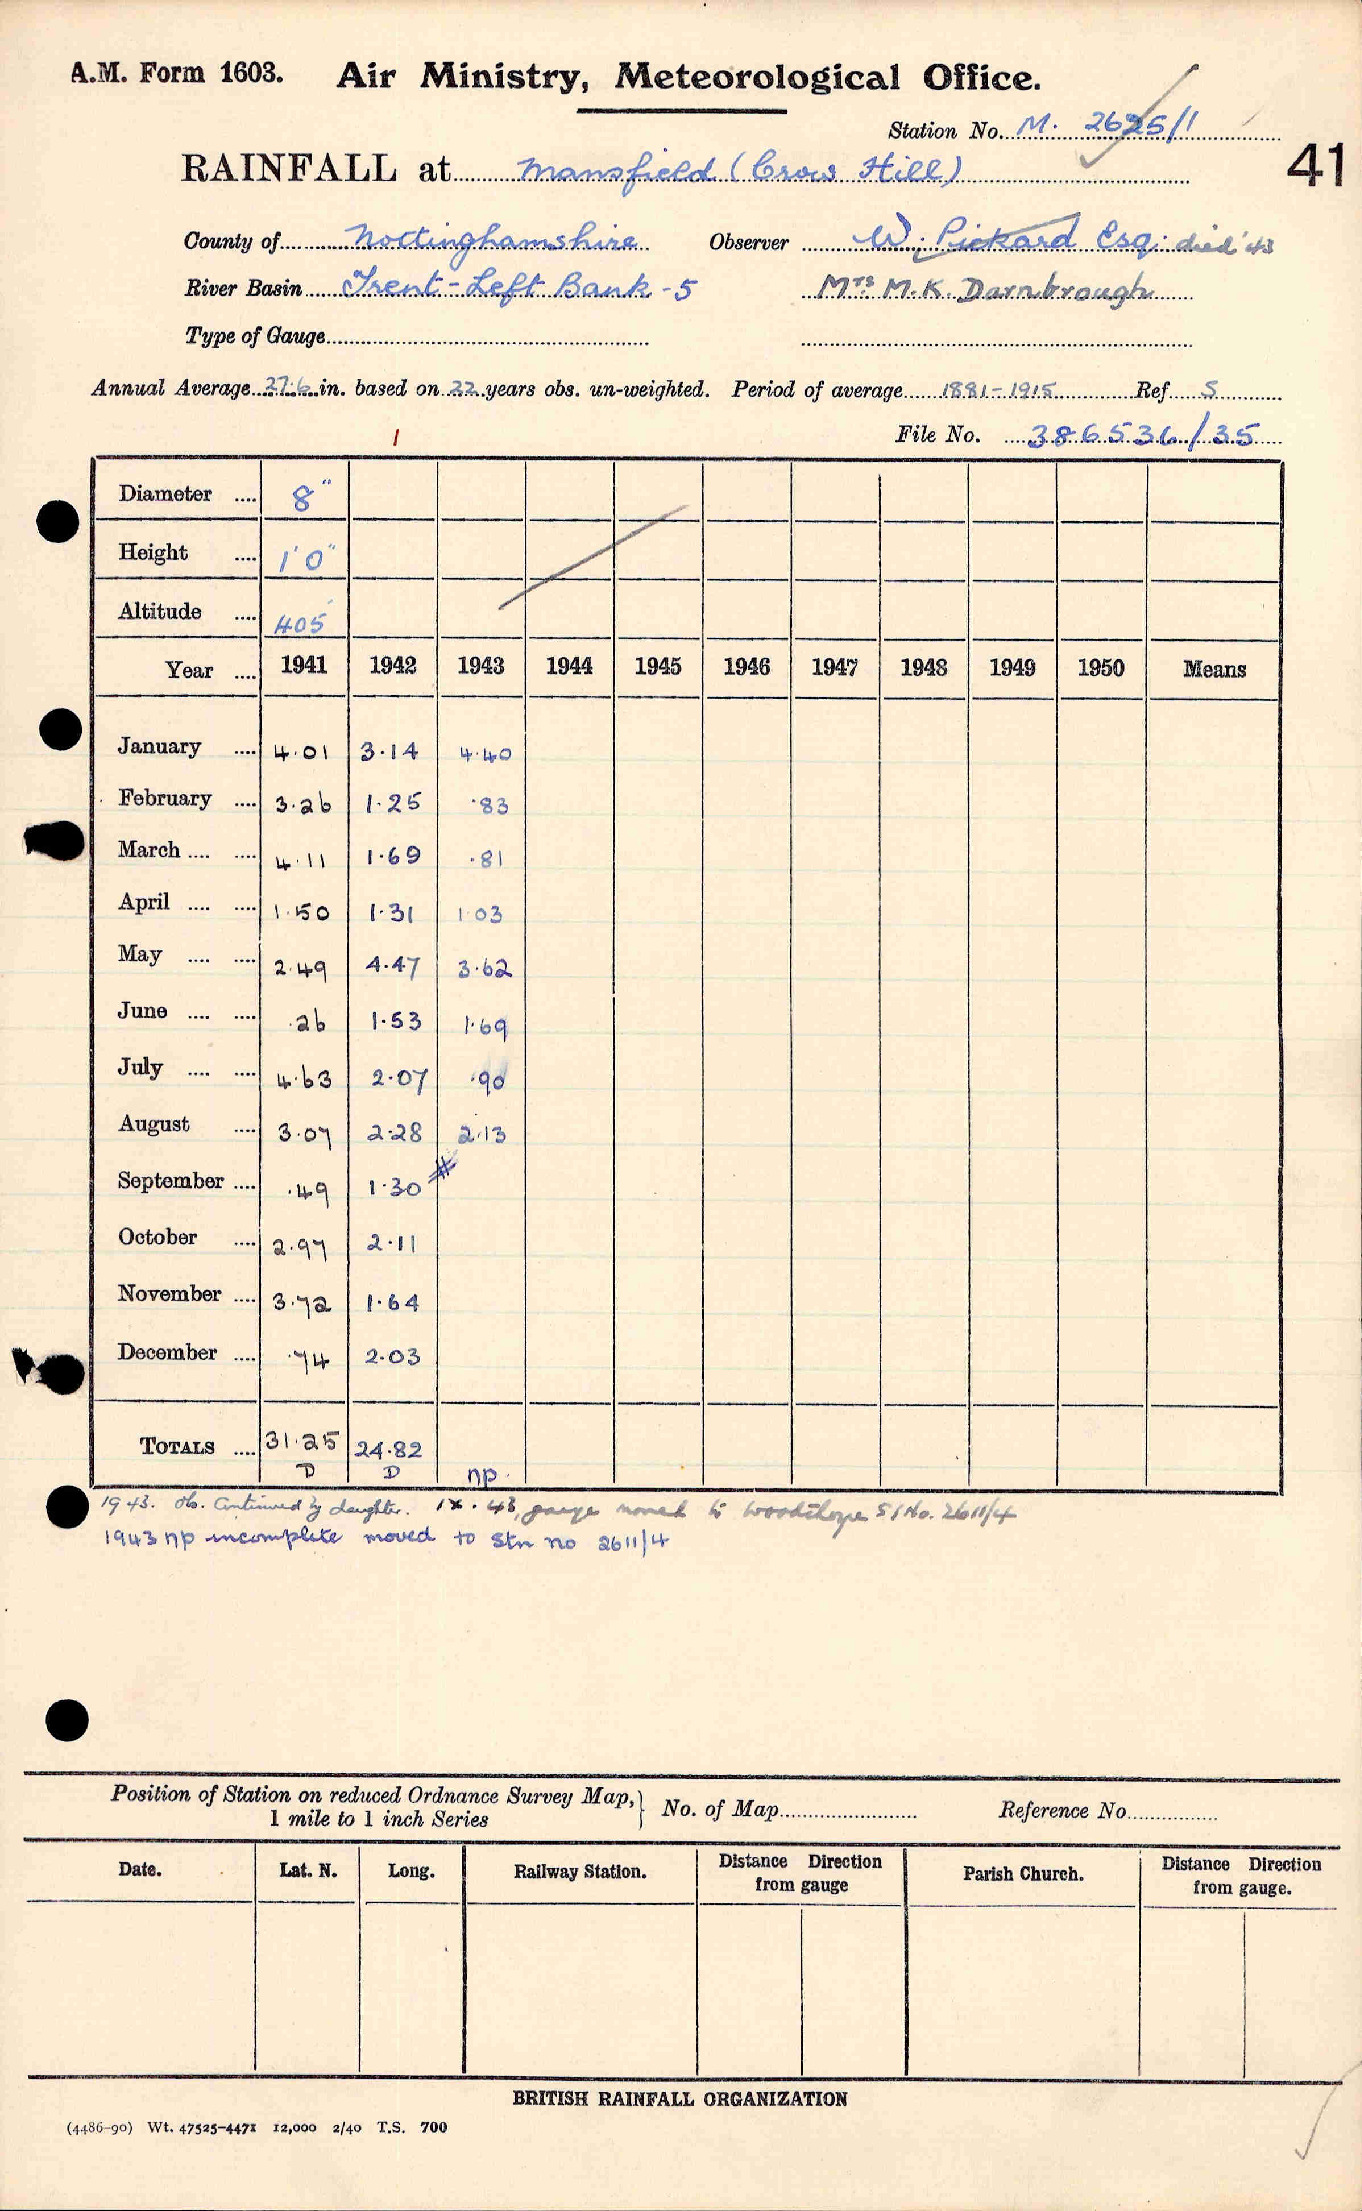 A.M. Form 1603. Air Ministry, Meteorological Office.
Station No. M. 2625/1
41
RAINFALL at Mansfield (Crow Hill)
County of Nottinghamshire Observer W. Pickard Esq. died '43
River Basin Trent-Left Bank-5 Mrs M.K. Darnbrough
Type of Gauge
Annual Average 27.6 in. based on 22 years obs. un-weighted. Period of average 1881-1915 Ref S
1 File No. 386536/35
Diameter .... 8"
Height .... 1'0"
Altitude .... 405'
Year .... 1941 1942 1943 1944 1945 1946 1947 1948 1949 1950 Means
January .... 4.01 3.14 4.40
February .... 3.26 1.25 .83
March .... .... 4.11 1.69 .81
April .... .... 1.50 1.31 1.03
May .... .... 2.49 4.47 3.62
June .... .... .26 1.53 1.69
July .... .... 4.63 2.07 .90
August .... 3.07 2.28 2.13
September .... .49 1.30 #
October .... 2.97 2.11
November .... 3.72 1.64
December .... .74 2.03
TOTALS .... 31.25 24.82
D D np.
1943. Ob. Continued by daughter. IX.43, gauge moved to Woodthorpe St No. 2611/4
1943 np incomplete moved to Stn no 2611/4
Position of Station on reduced Ordnance Survey Map, } No. of Map Reference No.
1 mile to 1 inch Series
Date. Lat. N. Long. Railway Station. Distance from gauge Direction Parish Church. Distance from gauge. Direction
BRITISH RAINFALL ORGANIZATION
(4486-90) Wt. 47525-4471 12,000 2/40 T.S. 700